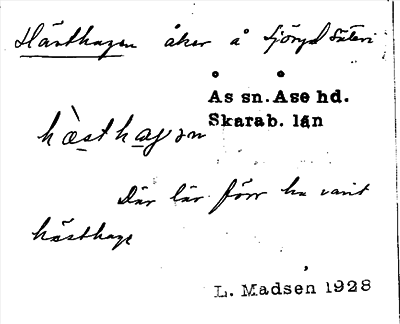 Hästhagen åker å Fjöryd Säteri
Ås sn. Åse hd.
Skarab. län
hàsthagən
Där lär förr ha varit
hästhage
L. Madsen 1928